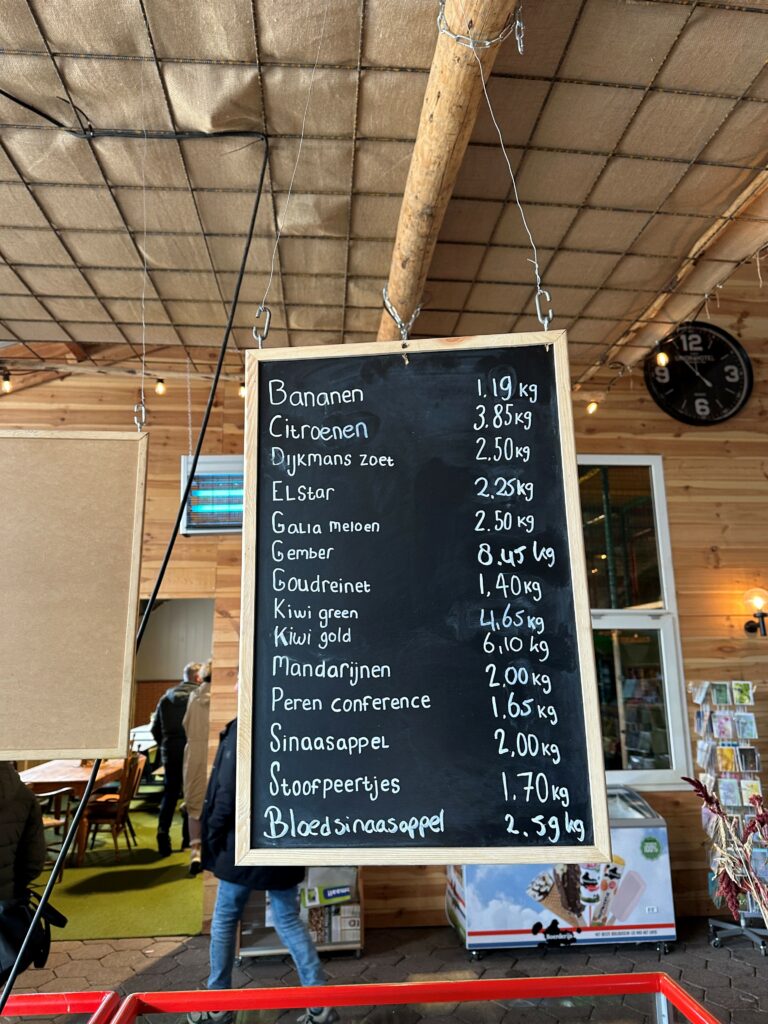 Bananen 1.19 kg
Citroenen 3.85 kg
Dijkmans zoet 2.50 kg
Elstar 2.25 kg
Galia meloen 2.50 kg
Gember 8.45 kg
Goudreinet 1,40 kg
Kiwi green 4,65 kg
Kiwi gold 6,10 kg
Mandarijnen 2,00 kg
Peren conference 1.65 kg
Sinaasappel 2,00 kg
Stoofpeertjes 1.70 kg
Bloedsinaasappel 2.59 kg
12
3
6
9